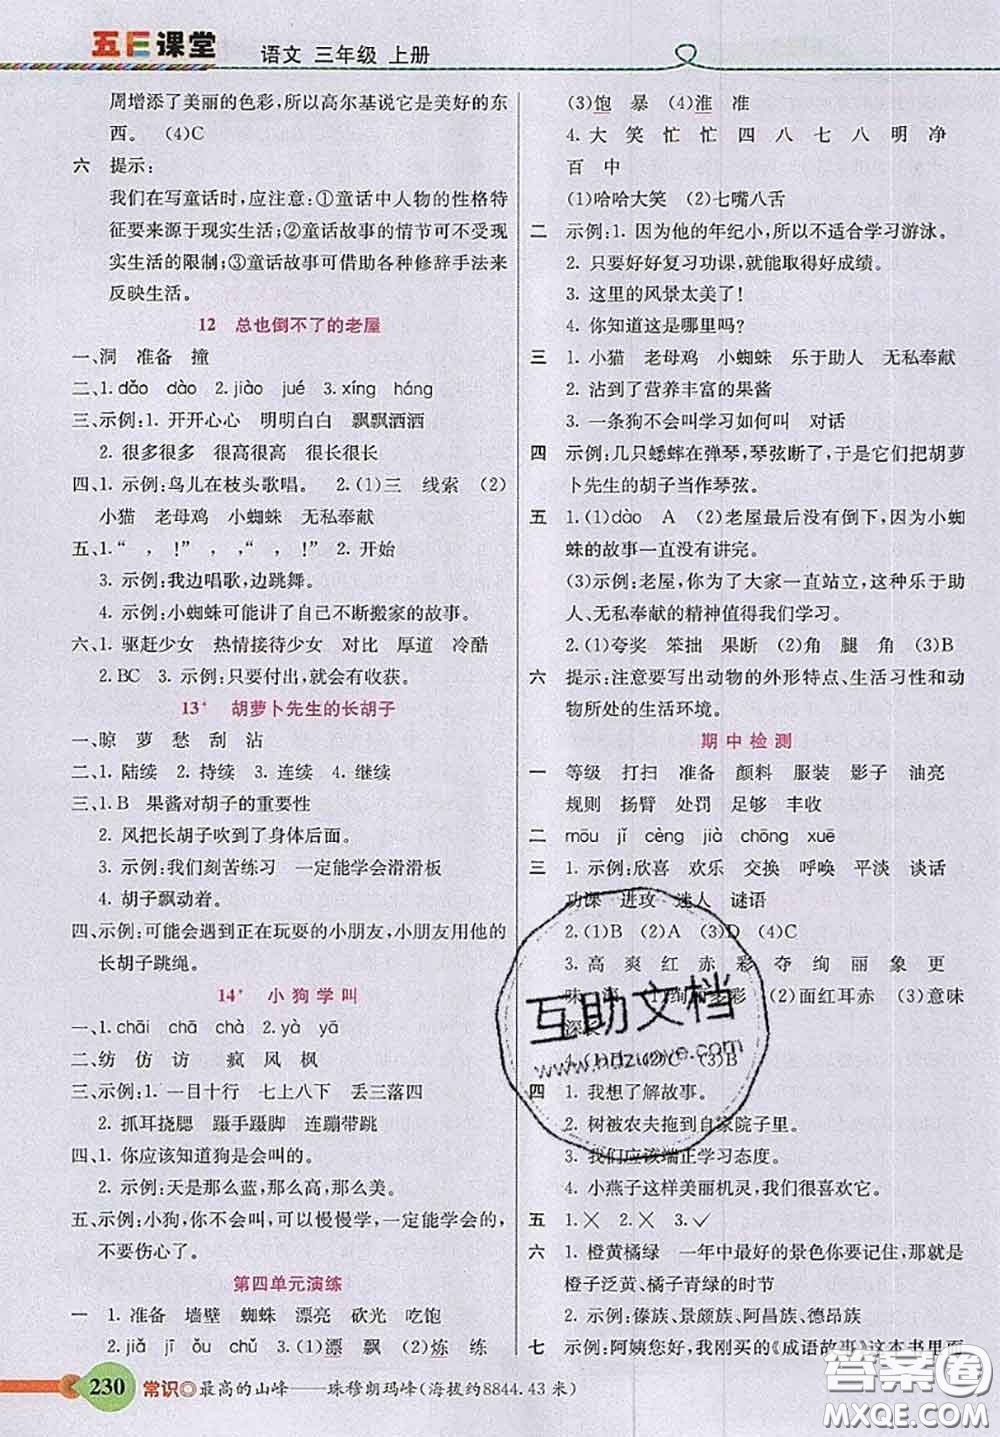 五E课堂
语文 三年级 上册
周增添了美丽的色彩,所以高尔基说它是美好的东
西。 (4)C
六 提示:
我们在写童话时,应注意:①童话中人物的性格特
征要来源于现实生活;②童话故事的情节可不受现
实生活的限制;③童话故事可借助各种修辞手法来
反映生活。
12 总也倒不了的老屋
一、洞 准备 撞
二、1. dǎo dào 2. jiào jué 3. xíng háng
三、示例:1. 开开心心 明明白白 飘飘洒洒
2. 很多很多 很高很高 很长很长
四、1. 示例:鸟儿在枝头歌唱。 2. (1)三 线索 (2)
小猫 老母鸡 小蜘蛛 无私奉献
五、1. “ , !” , ,“ !” 2. 开始
3. 示例:我边唱歌,边跳舞。
4. 示例:小蜘蛛可能讲了自己不断搬家的故事。
六、1. 驱赶少女 热情接待少女 对比 厚道 冷酷
2. BC 3. 示例:只要付出,就会有收获。
13* 胡萝卜先生的长胡子
一、晾 萝 愁 刮 沾
二、1. 陆续 2. 持续 3. 连续 4. 继续
三、1. B 果酱对胡子的重要性
2. 风把长胡子吹到了身体后面。
3. 示例:我们刻苦练习 一定能学会滑滑板
4. 胡子飘动着。
四、示例:可能会遇到正在玩耍的小朋友,小朋友用他的
长胡子跳绳。
14* 小狗学叫
一、1. chāi chā chà 2. yà yā
二、纺 仿 访 疯 风 枫
三、示例:1. 一目十行 七上八下 丢三落四
2. 抓耳挠腮 蹑手蹑脚 连蹦带跳
四、1. 你应该知道狗是会叫的。
2. 示例:天是那么蓝,那么高,那么美。
五、示例:小狗,你不会叫,可以慢慢学,一定能学会的,
不要伤心了。
第四单元演练
一 1. 准备 墙壁 蜘蛛 漂亮 砍光 吃饱
2. jiǎ jī ǒu chǔ 3. (1)漂 飘 (2)炼 练
(3)饱 暴 (4)淮 准
4. 大 笑 忙 忙 四 八 七 八 明 净
百 中
(1)哈哈大笑 (2)七嘴八舌
二 示例:1. 因为他的年纪小,所以不适合学习游泳。
2. 只要好好复习功课,就能取得好成绩。
3. 这里的风景太美了!
4. 你知道这是哪里吗?
三 1. 小猫 老母鸡 小蜘蛛 乐于助人 无私奉献
2. 沾到了营养丰富的果酱
3. 一条狗不会叫学习如何叫 对话
四 示例:几只蟋蟀在弹琴,琴弦断了,于是它们把胡萝
卜先生的胡子当作琴弦。
五 1. (1)dào A (2)老屋最后没有倒下,因为小蜘
蛛的故事一直没有讲完。
(3)示例:老屋,你为了大家一直站立,这种乐于助
人、无私奉献的精神值得我们学习。
2. (1)夸奖 笨拙 果断 (2)角 腿 角 (3)B
六 提示:注意要写出动物的外形特点、生活习性和动
物所处的生活环境。
期中检测
一 等级 打扫 准备 颜料 服装 影子 油亮
规则 扬臂 处罚 足够 丰收
二 mōu jǐ cèng jià chōng xuē
三 1. 示例:欣喜 欢乐 交换 呼唤 平淡 谈话
功课 进攻 迷人 谜语
2. (1)B (2)A (3)D (4)C
3. 高 爽 红 赤 彩 夺 绚 丽 象 更
味 深 (1)绚丽多彩 (2)面红耳赤 (3)意味
深长
4. (2)C (3)B
四 1. 我想了解故事。
2. 树被农夫拖到自家院子里。
3. 我们应该端正学习态度。
4. 小燕子这样美丽机灵,我们很喜欢它。
五 1. ╳ 2. ╳ 3. ✓
六 1. 橙黄橘绿 一年中最好的景色你要记住,那就是
橙子泛黄、橘子青绿的时节
2. 示例:傣族、景颇族、阿昌族、德昂族
七 示例:阿姨您好,我刚买的《成语故事》这本书里面
互助文档
答案圈
MXQE.COM
230 常识 最高的山峰——珠穆朗玛峰(海拔约8844.43米)